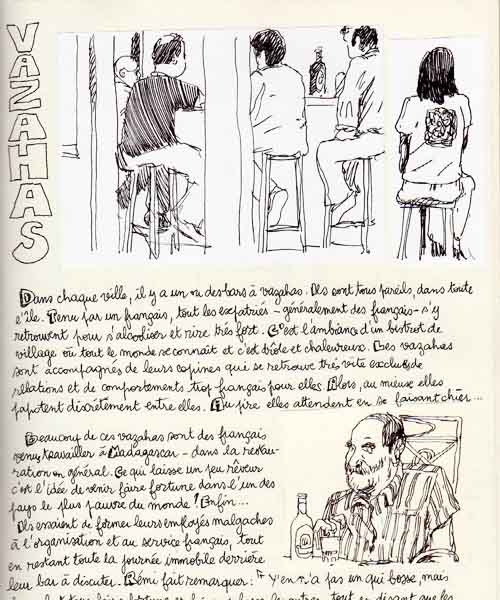 VAZAHAS
Dans chaque ville, il y a un ou des bars à vazahas. Ils sont tous pareils, dans toute
l'île. Tenu par un français, tout les expatriés - généralement des français - s'y
retrouvent pour s'alcooliser et rire très fort. C'est l'ambiance d'un bistrot de
village où tout le monde se connait et c'est drôle et chaleureux. Les vazahas
sont accompagnés de leurs copines qui se retrouve très vite exclues de
relations et de comportements trop français pour elles. Alors, au mieux elles
papotent discrètement entre elles. Au pire elles attendent en se faisant chier...
Beaucoup de ces vazahas sont des français
venus travailler à Madagascar - dans la restau-
ration en général. Ce qui laisse un peu rêveur
c'est l'idée de venir faire fortune dans l'un des
pays le plus pauvre du monde! Enfin...
Ils essaient de former leurs employés malgaches
à l'organisation et au service français, tout
en restant toute la journée immobile derrière
leur bar à discuter. Rémi fait remarquer: "Y'en n'a pas un qui bosse, mais